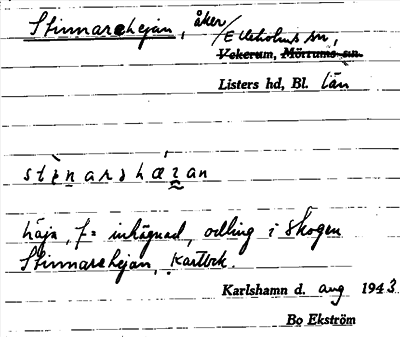 Stinnarehejan, åker
Elleholms sn,
Vekerum, Mörrums sn.
Listers hd, Bl. län
stènarshæzan
häjn, f = inhägnad, odling i skogen
Stinnarehejan, kartbok.
Karlshamn d. aug 1943
Bo Ekström